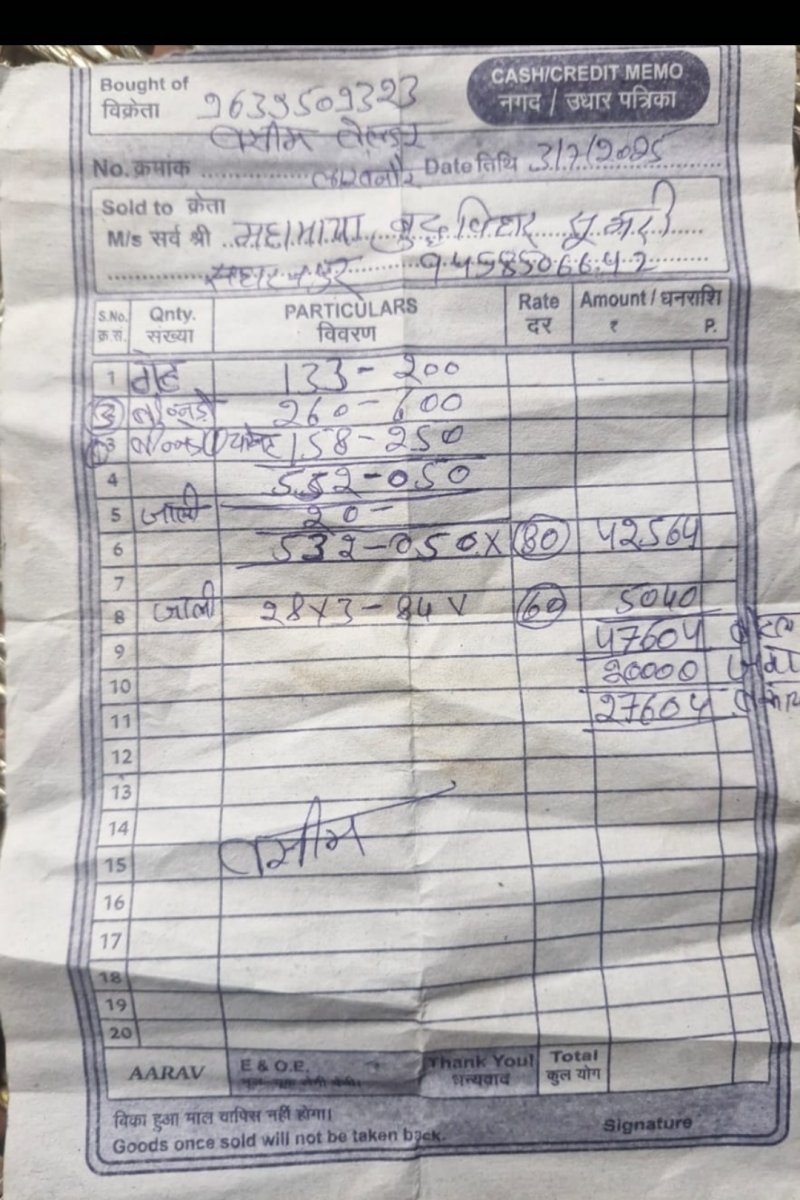 Bought of
विक्रेता 9639509323
CASH/CREDIT MEMO
नगद / उधार पत्रिका
वसीम वेल्डर
No. क्रमांक लखनौर Date तिथि 3/7/2025
Sold to क्रेता
M/s सर्व श्री महामाया बुद्ध विहार
9458506642
S.No. क्र.सं. Qnty. संख्या PARTICULARS विवरण Rate दर Amount / धनराशि ₹ P.
1 गेट 133-200
2 260-600
3 158-250
4 552-050
5 जाली 20-
6 532-050 X 80 42564
7
8 जाली 28X3-84 60 5040
9 47604
10 20000 जमा
11 27604
12
13
14
वसीम
15
16
17
18
19
20
AARAV E & O.E. Thank You! धन्यवाद Total कुल योग
विका हुआ माल वापिस नहीं होगा।
Goods once sold will not be taken back. Signature